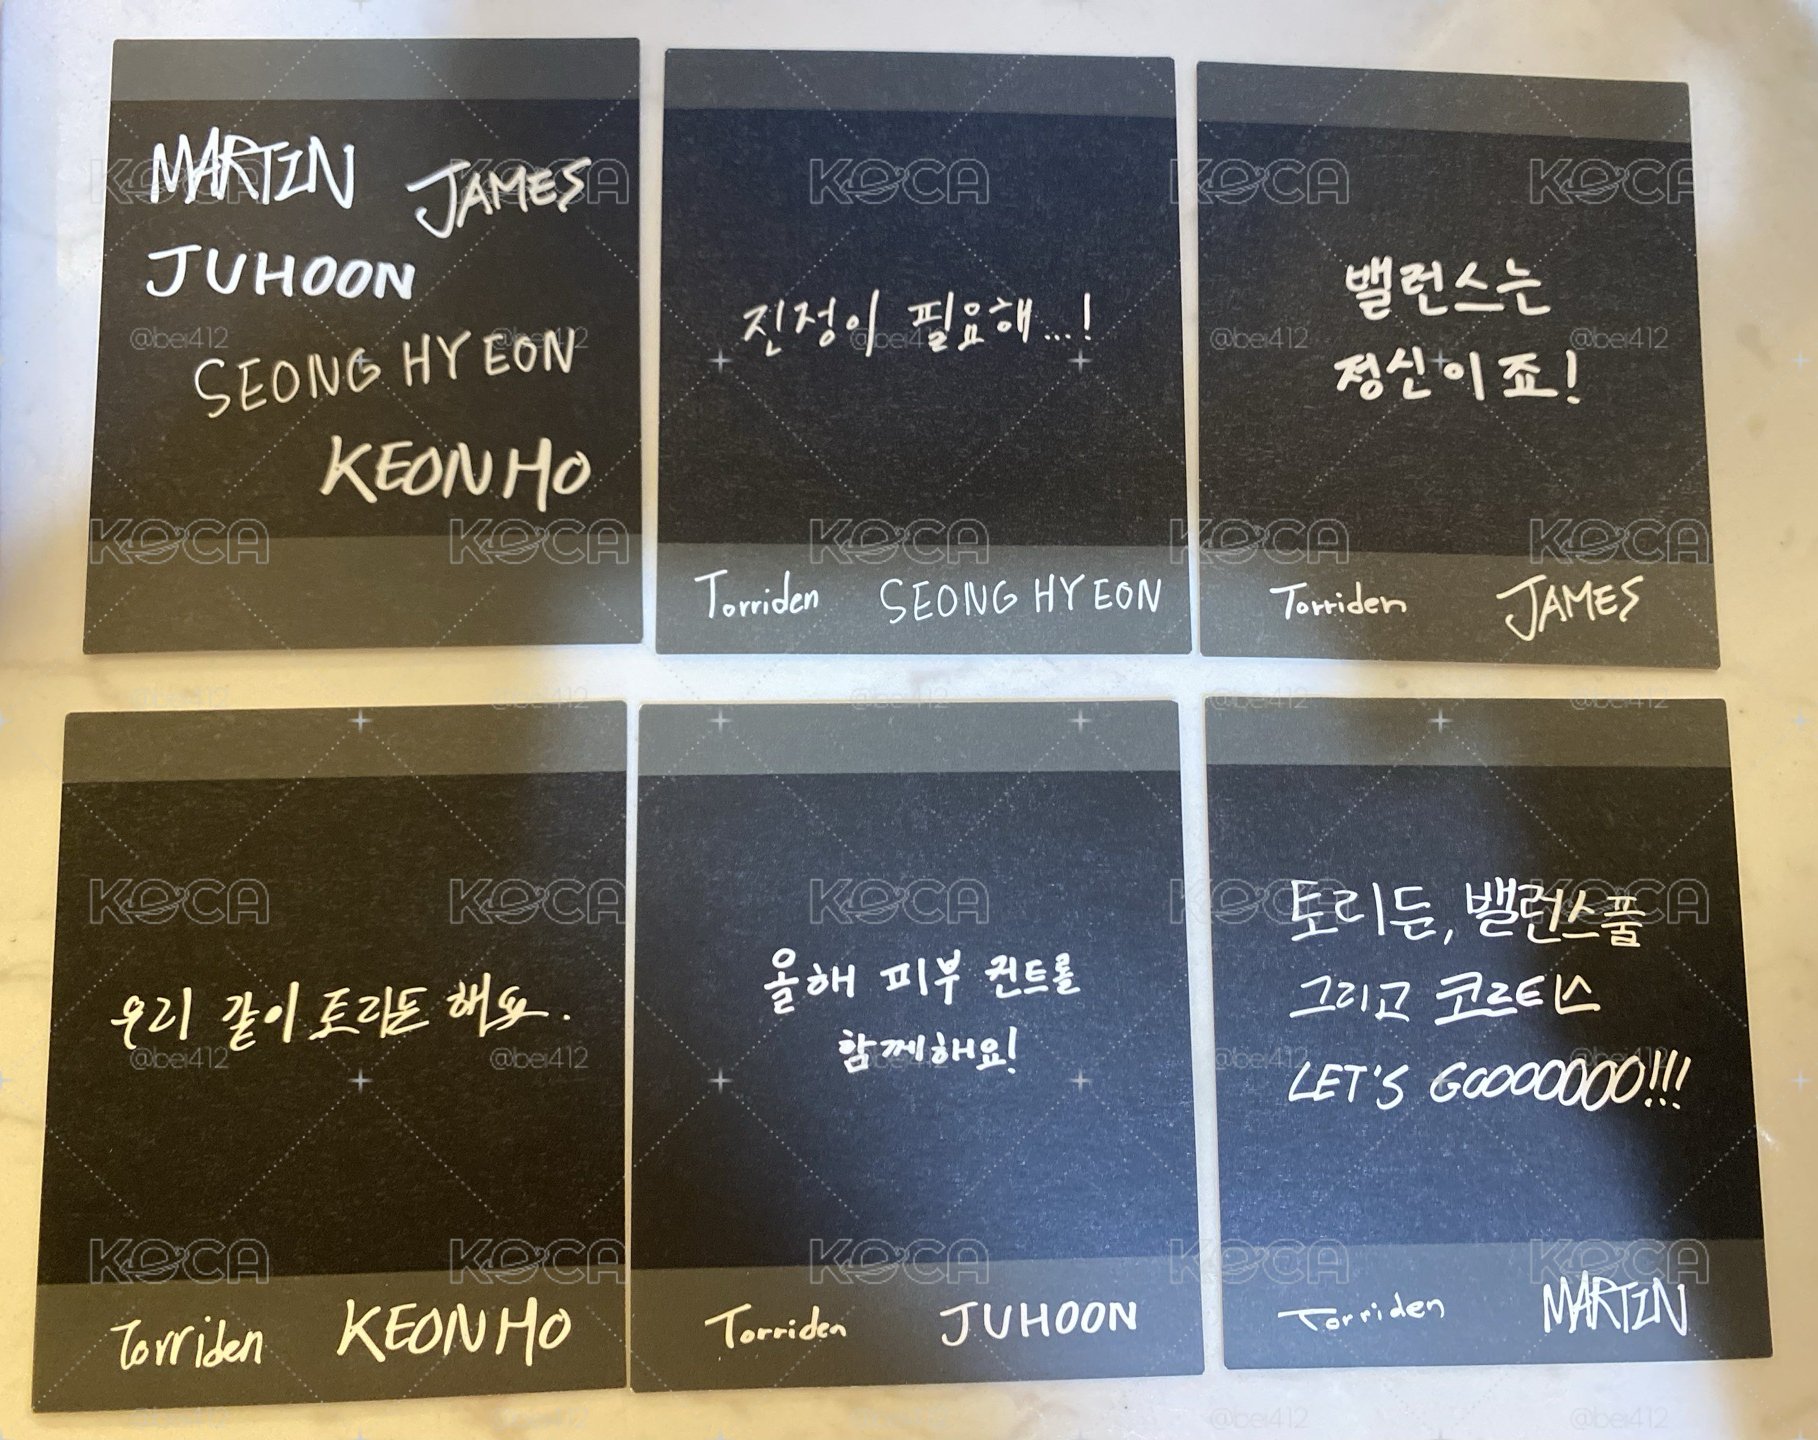 MARTIN JAMES
JUHOON
SEONGHYEON
KEONHO
진정이 필요해...!
Torriden SEONGHYEON
밸런스는
정신이죠!
Torriden JAMES
우리 같이 토리든 해요.
Torriden KEONHO
올해 피부 컨트롤
함께해요!
Torriden JUHOON
토리든, 밸런스풀
그리고 코르티스
LET'S GOOOOOOOO!!!
Torriden MARTIN
KOCA
@bei412